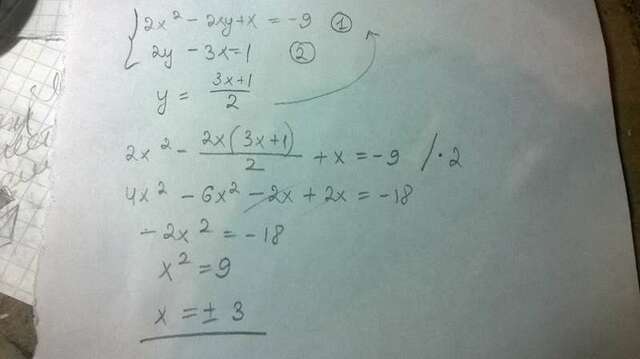 2x² - 2xy + x = -9 ①
2y - 3x = 1 ②
y = (3x+1)/2
2x² - 2x(3x+1)/2 + x = -9 / · 2
4x² - 6x² - 2x + 2x = -18
- 2x² = -18
x² = 9
x = ± 3